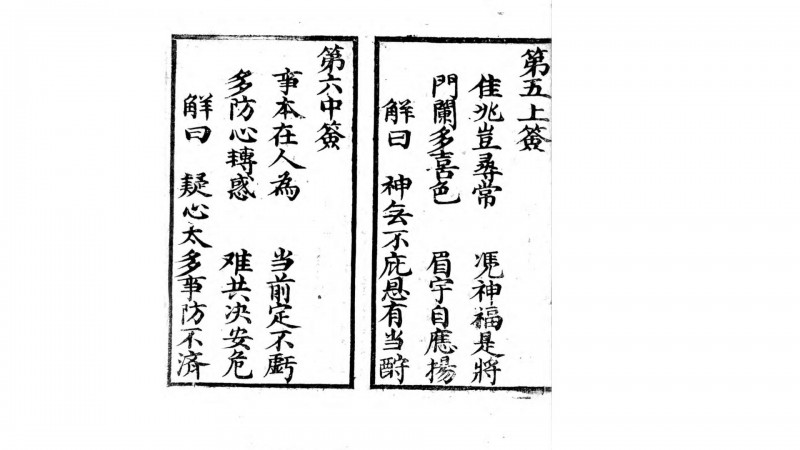 第五上簽
佳兆豈尋常 凴神福是將
門闌多喜色 眉宇自應揚
解曰 神无不庇恩有当酧
第六中簽
事本在人為 当前定不虧
多防心轉惑 难共决安危
解曰 疑心太多事防不濟